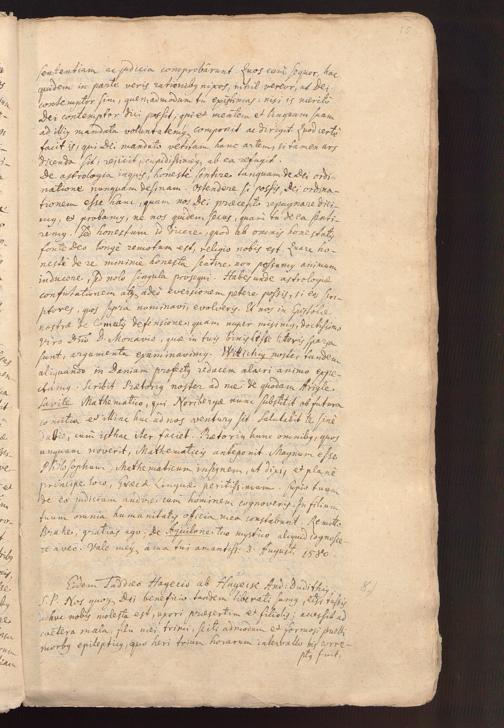 15
sententiam ac judicia comprobârunt. Quos cum sequor, hac
quidem in parte veris rationibus nixos, nihil vereor, ut Dei
contemptor sim, quemadmodum tu existimas: nisi is meritò
Dei contemptor dici possit, qui et mentem et linguam suam
ad illius mandata voluntatemque componit ac dirigit. Quod certè
facit is, qui Dei mandato vetitam hanc artem, si tamen ars
dicenda sit, rejicit, cupidissimeque ab ea refugit.
De astrologia, inquis, honestè sentire tanquam de Dei ordi-
natione nunquam desinam. Ostendere si possis, Dei ordina-
tionem esse hanc, quam nos Dei praecepto repugnare dici-
mus, et probamus, ne nos quidem secus, quam tu de ea senti-
remus. Id honestum dicere, quod ab omnis honestatis
fonte Deo longè remotum est, religio nobis est. Quare ho-
nestè de re minimè honesta sentire, non possum animum
inducere, sed nolo singula prosequi. Habes unde astrologiae
confutationem atque adeò eversionem petere possis, si eos scri-
ptores, quos supra nominavi, evolveris. Et nos in Epistola
nostra de Cometis defensione, quam nuper misimus doctissimo
viro D. Monavio, quae in tuis binis literis sparsa
sunt, argumenta examinavimus. Wittichius noster tandem
aliquando in Daniam profectus reducem alacri animo expe-
ctamus. Scribit Praetorius noster ad me de quodam Anglo
Savile Mathematico, qui Noribergae nunc substitit ibi futura
et hinc huc ad nos venturus sit. Salutabit te sine
dubio, cum isthac iter faciet. Praetorius hunc omnibus, quos
unquam noverit, Mathematicis anteponit. Magnum esse
Philosophum, Mathematicum insignem, ut dixi, et planè
principe loco, Graecae Linguae peritissimum. Cupio tuum
de eo judicium audire, cum hominem cognoveris. In filium
tuum omnia humanitatis officia mea constabunt. Remitto
Brahe, gratias ago. De Aquilone tuo mystico aliquid cognosce-
re aveo. Vale meque, a tui amantissimo. 3. Augusti 1580.
Eidem Taddaeo Hagecio ab Hayeck And: Duditius. 8.)
S. P. Nos quoque Dei beneficio tandem liberati sumus, etsi tussis
adhuc nobis molesta est, uxori praesertim et filiolis; accessit ad
caetera mala, filii mei trimi, scitè admodum et formosi pueri
morbus epilepticus, quo heri trium horarum intervallo bis corre-
ptus fuit.